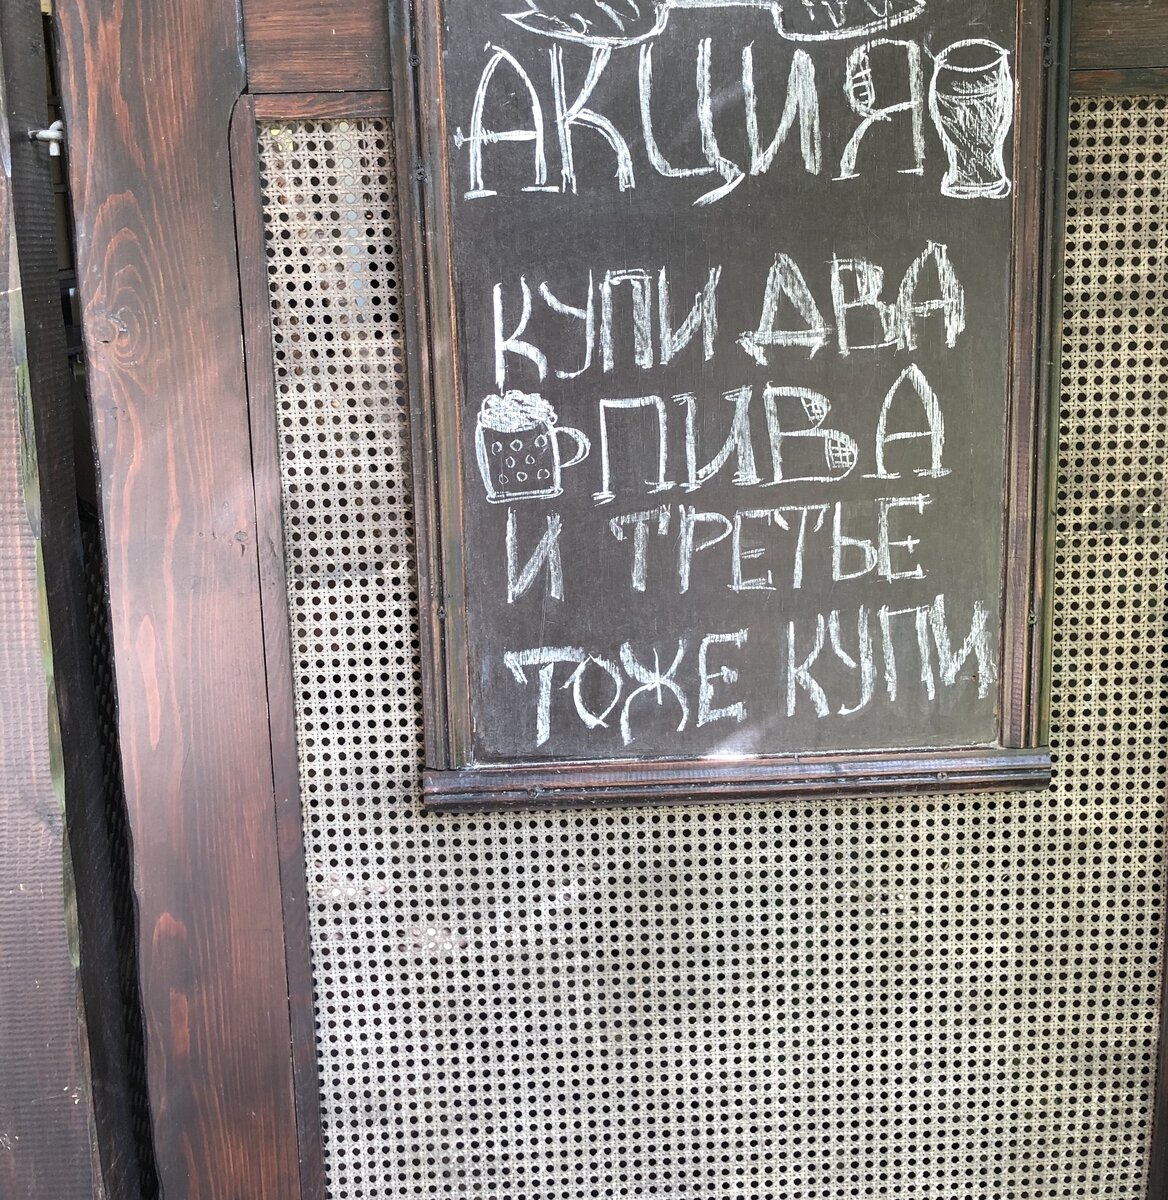 АКЦИЯ
КУПИ ДВА
ПИВА
И ТРЕТЬЕ
ТОЖЕ КУПИ